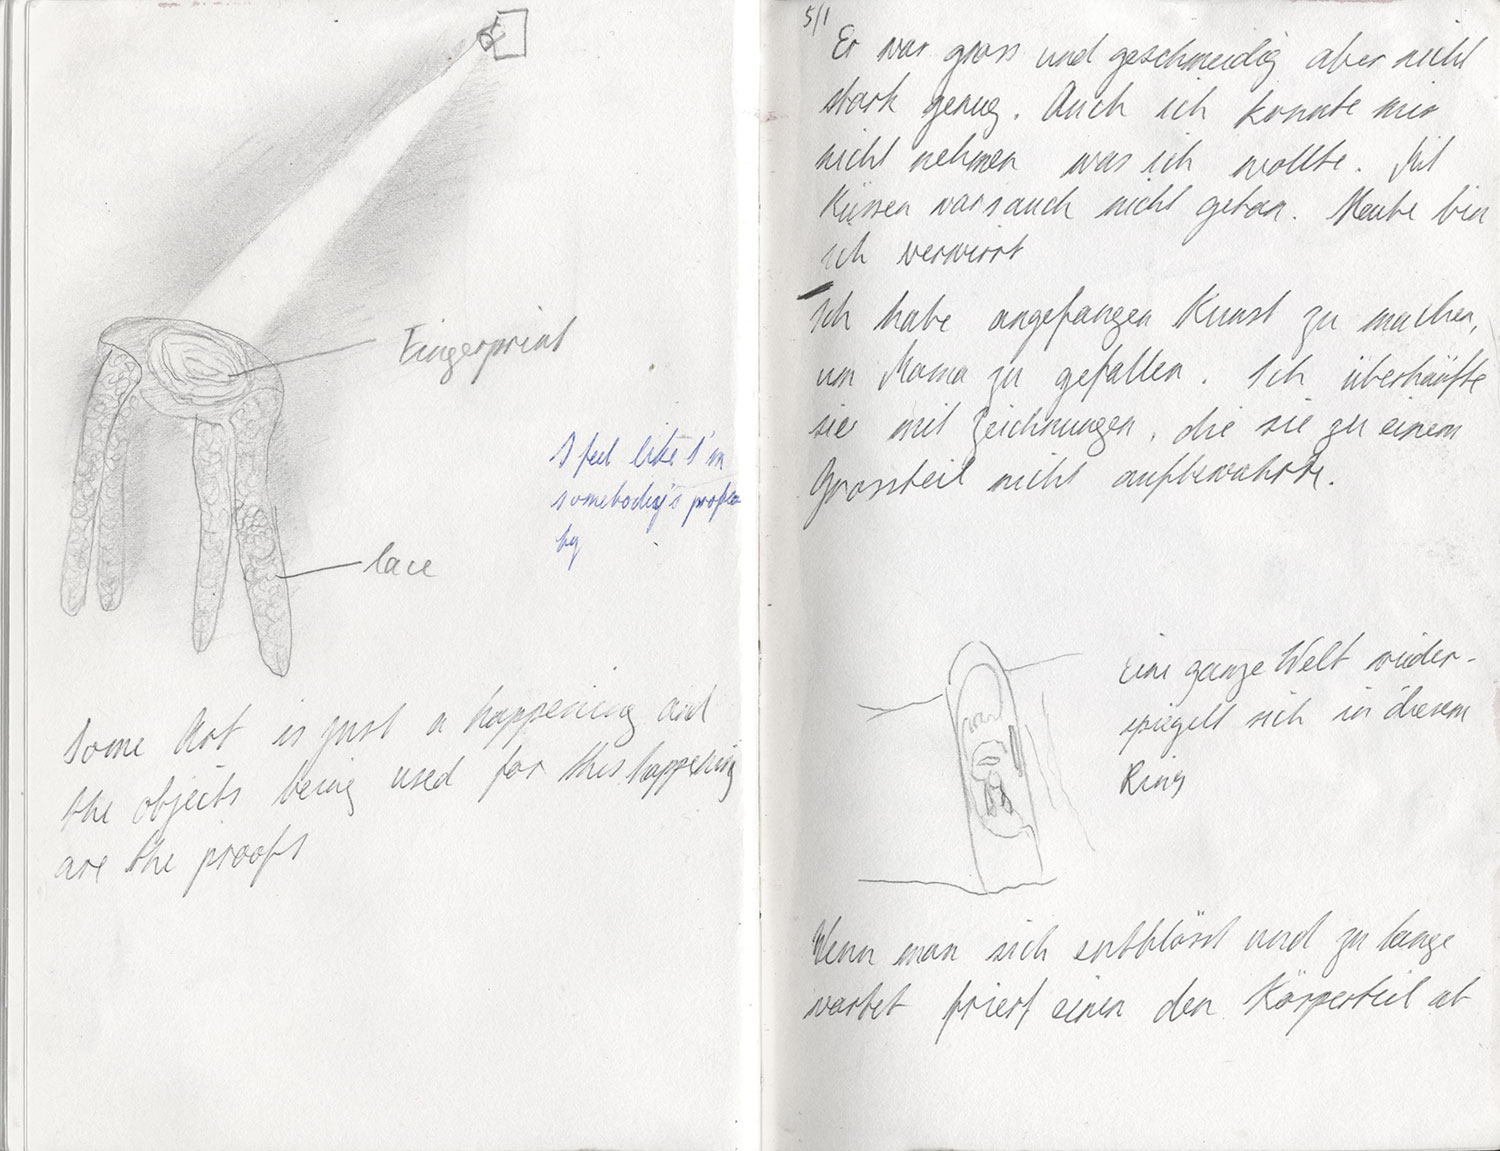 Fingerprint
I feel like I'm
somebody's
by
lace
Some Art is just a happening and
the objects being used for this happening
are the proofs
5/1
Er war gross und geschmeidig aber nicht
stark genug. Auch ich konnte mir
nicht nehmen was ich wollte. Mit
Küssen wars auch nicht getan. Heute bin
ich verwirrt
Ich habe angefangen Kunst zu machen,
um Mama zu gefallen. Ich überhäufte
sie mit Zeichnungen, die sie zu einem
Grossteil nicht aufbewahrte.
Eine ganze Welt wider-
spiegelt sich in diesem
Ring
Wenn man sich entblösst und zu lange
wartet friert einen den Körperteil ab